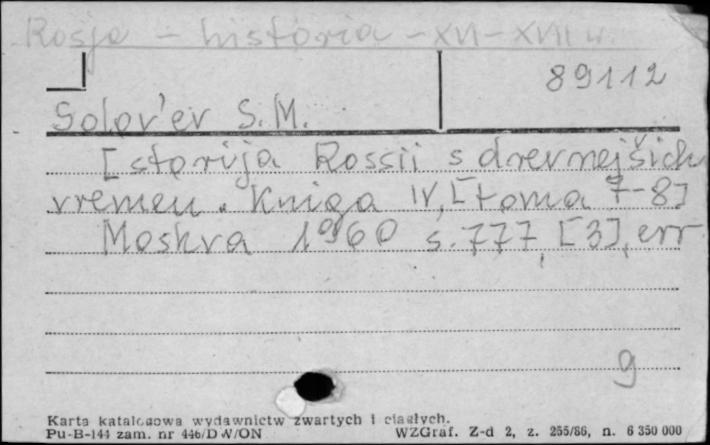 Rosja - historia - XVI - XVII w.
89112
Solov'ev S.M.
Istorija Rossii s drevnejšich
vremen. Kniga IV, [toma 7-8]
Moskva 1960 s. 777, [3], err
9
Karta katalogowa wydawnictw zwartych i ciągłych.
Pu-B-144 zam. nr 446/DW/ON WZGraf. Z-d 2, z. 255/86, n. 6 350 000